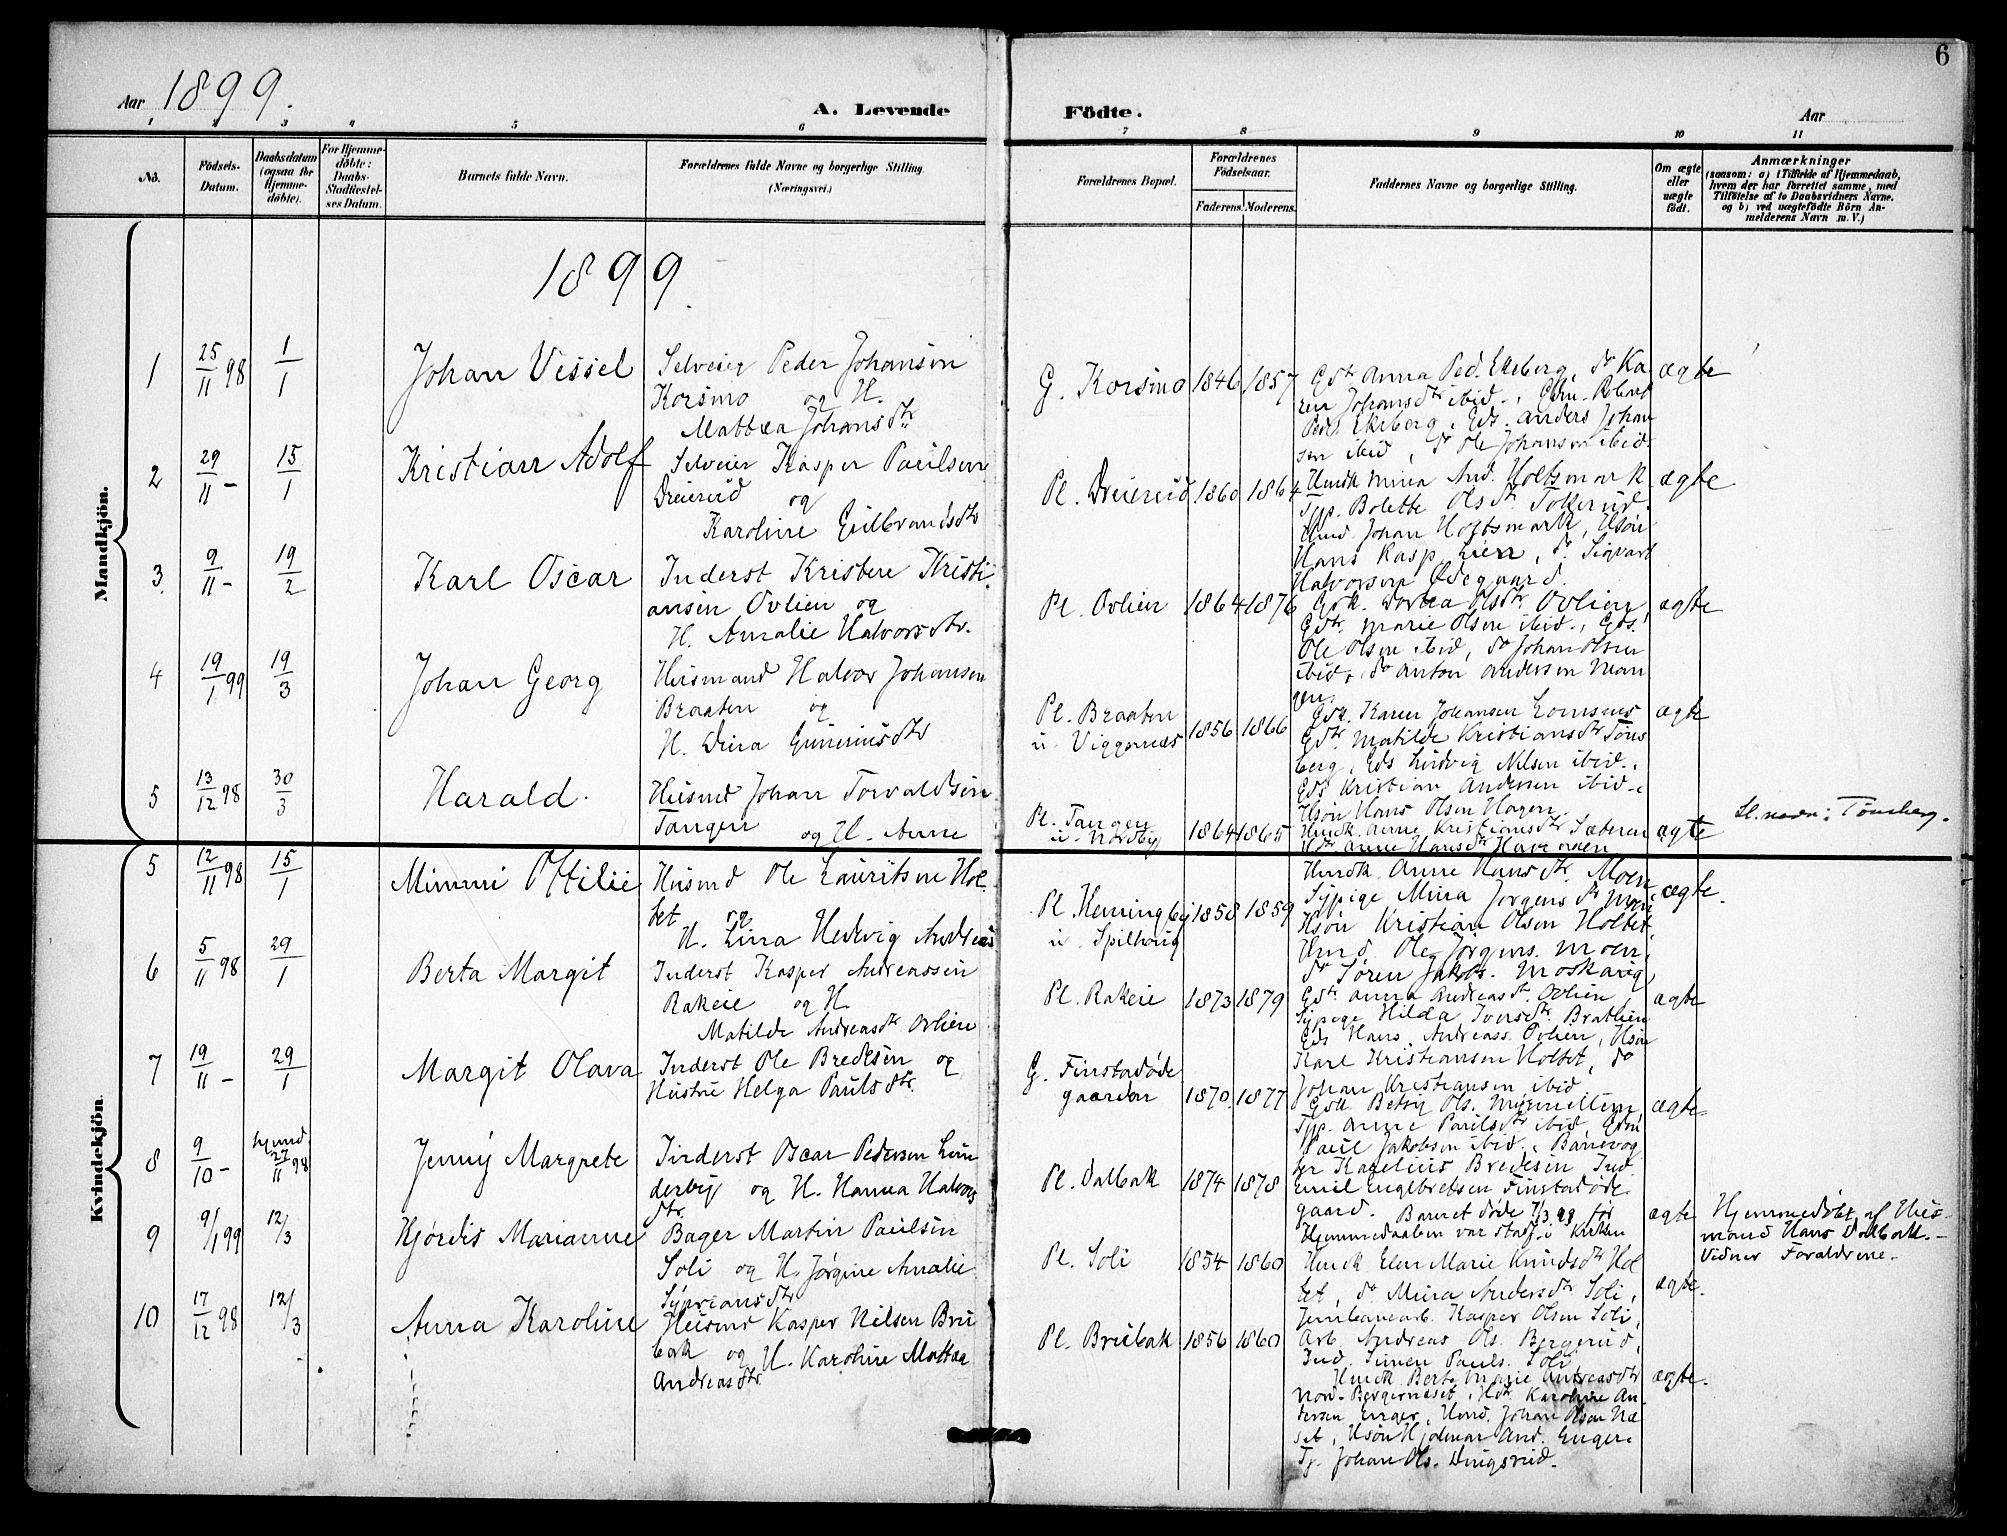 6
Aar 1899.
A. Levende
Födte.
Aar
1 2 3 4 5 6 7 8 9 10 11
No.
Födsels-Datum.
Daabsdatum (ogsaa for Hjemme-döbte).
For Hjemme-döbte: Daabs-Stadfæstel-ses Datum.
Barnets fulde Navn.
Forældrenes fulde Navne og borgerlige Stilling.
(Næringsvei.)
Forældrenes Bopæl.
Forældrenes Födselsaar.
Faderens. Moderens.
Faddernes Navne og borgerlige Stilling.
Om ægte eller uægte født.
Anmærkninger
(saasom: a) i Tilfælde af Hjemmedaab,
hvem der har forrettet samme, med
Tilföielse af to Daabsvidners Navne.
og b) ved uægtefödte Börn An-
melderens Navn m. V.)
1899.
Mandkjön.
1 25/11 98 1/1 Johan Vessel
Selveier Peder Johansen
Korsmo og H.
Mattea Johansdtr
G. Korsmo 1846 1857
Gdtr Anna Ped. Ekeberg, do Ka
ren Johansdtr ibid.,
Peders. Ekeberg, Gds. Anders Johan
sen ibid, do Ole Johansen ibid
ægte
2 29/11 - 15/1 Kristian Adolf
Selveier Kasper Paulsen
Dreierud og
Karoline Gulbrandsdtr
Pl. Dreierud 1860 1864
Hmdk Mina And. Holtsmark
Pp. Bolette Olsdtr Tokerud
Hmd. Johan Holtsmark, Hsøn
Hans Kasp. Lien, do. Sigvart
Halvorsen Ødegaard.
ægte
3. 9/11 - 19/2 Karl Oscar
Inderst Kristen Kristi-
ansen Ovlien og
H. Amalie Halvorsdtr.
Pl. Ovlien 1864 1876
Gdk. Dorthea Olsdtr Ovlien
Gdtr. Marie Olsen ibid., Gds.
Ole Olsen ibid, do Johan Olsen
ibid, do Anton Andersen Man
gen.
ægte
4 19/1 99 19/3 Johan Georg
Husmand Halvor Johansen
Braaten og
H. Dina Gunerusdtr
Pl. Braaten
u. Viggernes 1856 1866
Gdk. Karen Johansen
Gdtr. Matilde Kristiansdtr Tøns
berg, Gds Ludvig Nilsen ibid.,
Gds Kristian Andersen ibid.,
Hsøn Hans Olsen Hagen
ægte
5 13/12 98 30/3 Harald.
Husmd Johan Torvaldsen
Tangen og H. Anne
Pl. Tangen
u. Nordby 1864 1865
Hmdk. Anne Kristiansdtr Sæteren
Hdtr Anne Hansdtr
ægte
Sl. navn: Tønsberg.
Kvindekjön.
5 12/11 98 15/1 Mimmi Ottilie
Husmd Ole Lauritsen Hol-
tet og
H. Lina Hedvig Andreas
Pl. Hemingbyj
u. Spilhaug 1858 1859
Hmdk. Anne Hansdtr. Moen
Sypige Mina Jørgensdtr Moen
Hsøn Kristian Olsen Holtet.
Hmd. Ole Jørgens. Moen,
do Søren Jakobs. Moskaug
ægte.
6 5/11 98 29/1 Berta Margit
Inderst Kasper Andreassen
Rakeie og H.
Matilde Andreasdtr Ovlien
Pl. Rakeie 1873 1879
Gdtr. Anna Andreasdt. Ovlien,
Sypige Hilda Iversdtr. Brathen
Gds Hans Andreass. Ovlien, Hsøn
Karl Kristiansen Holtet, do
Johan Kristiansen ibid
ægte
7 19/11 - 29/1 Margit Olava
Inderst Ole Bredesen og
Hustru Helga Paulsdtr.
G. Finstadøde
gaarden 1870. 1877
Gdk Betsy Ols.
Pp. Anne Paulsdtr ibid, Gdm
Paul Jakobsen ibid., Banevog
ter Karelius Bredesen, Ind.
Emil Engebretsen Finstadøde
gaard.
ægte
8 9/10 - hjmd. 27/11 98 Jenny Margrete
Inderst Oscar Pedersen Lun
derbyj og H. Hanna Halvors
dtr.
Pl. Dalbak 1874 1878
Barnet døde 7/3 99 før
Hjemmedaaben var stadf. i Kirken
ægte
Hjemmedøbt af Hus-
mand Hans Dalbak. -
Vidner Forældrene. -
9 9/1 99 12/3 Hjørdis Marianne
Bager Martin Paulsen
Soli og H. Jørgine Amalie
Sypriansdtr
Pl. Soli 1854 1860
Hmdk Elen Marie Knudsdtr Hol
tet, do Mina Andersdtr Soli,
Jernbanearb. Kasper Olsen Soli,
Arb. Andreas Ols. Bergerud,
Ind. Simen Pauls. Soli
ægte.
10 17/12 98 12/3 Anna Karoline
Husmd Kasper Nilsen Bru
bak og H. Karoline Mattea
Andreasdtr
Pl. Brubak 1856 1860
Hmdk Berte Marie Andreasdtr
Nord-Bergerneset, Hdtr Karoline An
dersen Enger, Hmd. Johan Olsen Næ
set, Hsøn Hjalmar And. Enger.
Tj. Johan Ols. Dingsrud.
ægte.